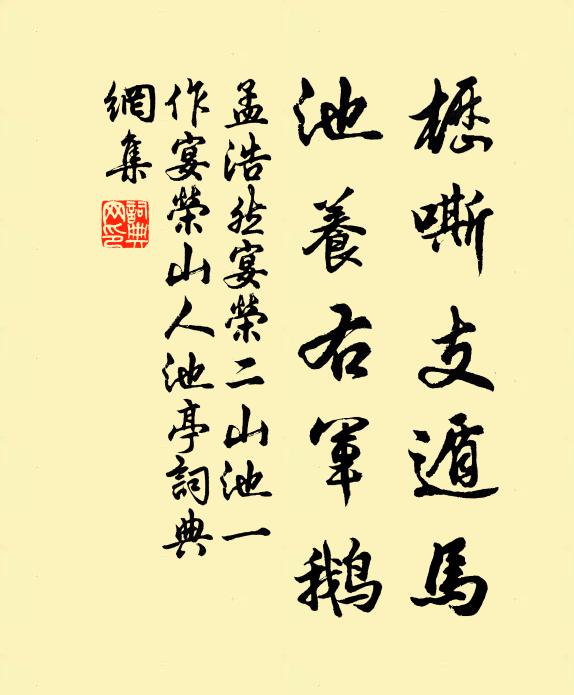 櫪嘶支遁馬
池養右軍鵝
孟浩然宴榮二山池一
作宴榮山人池亭詞典
網集
詞典
网印